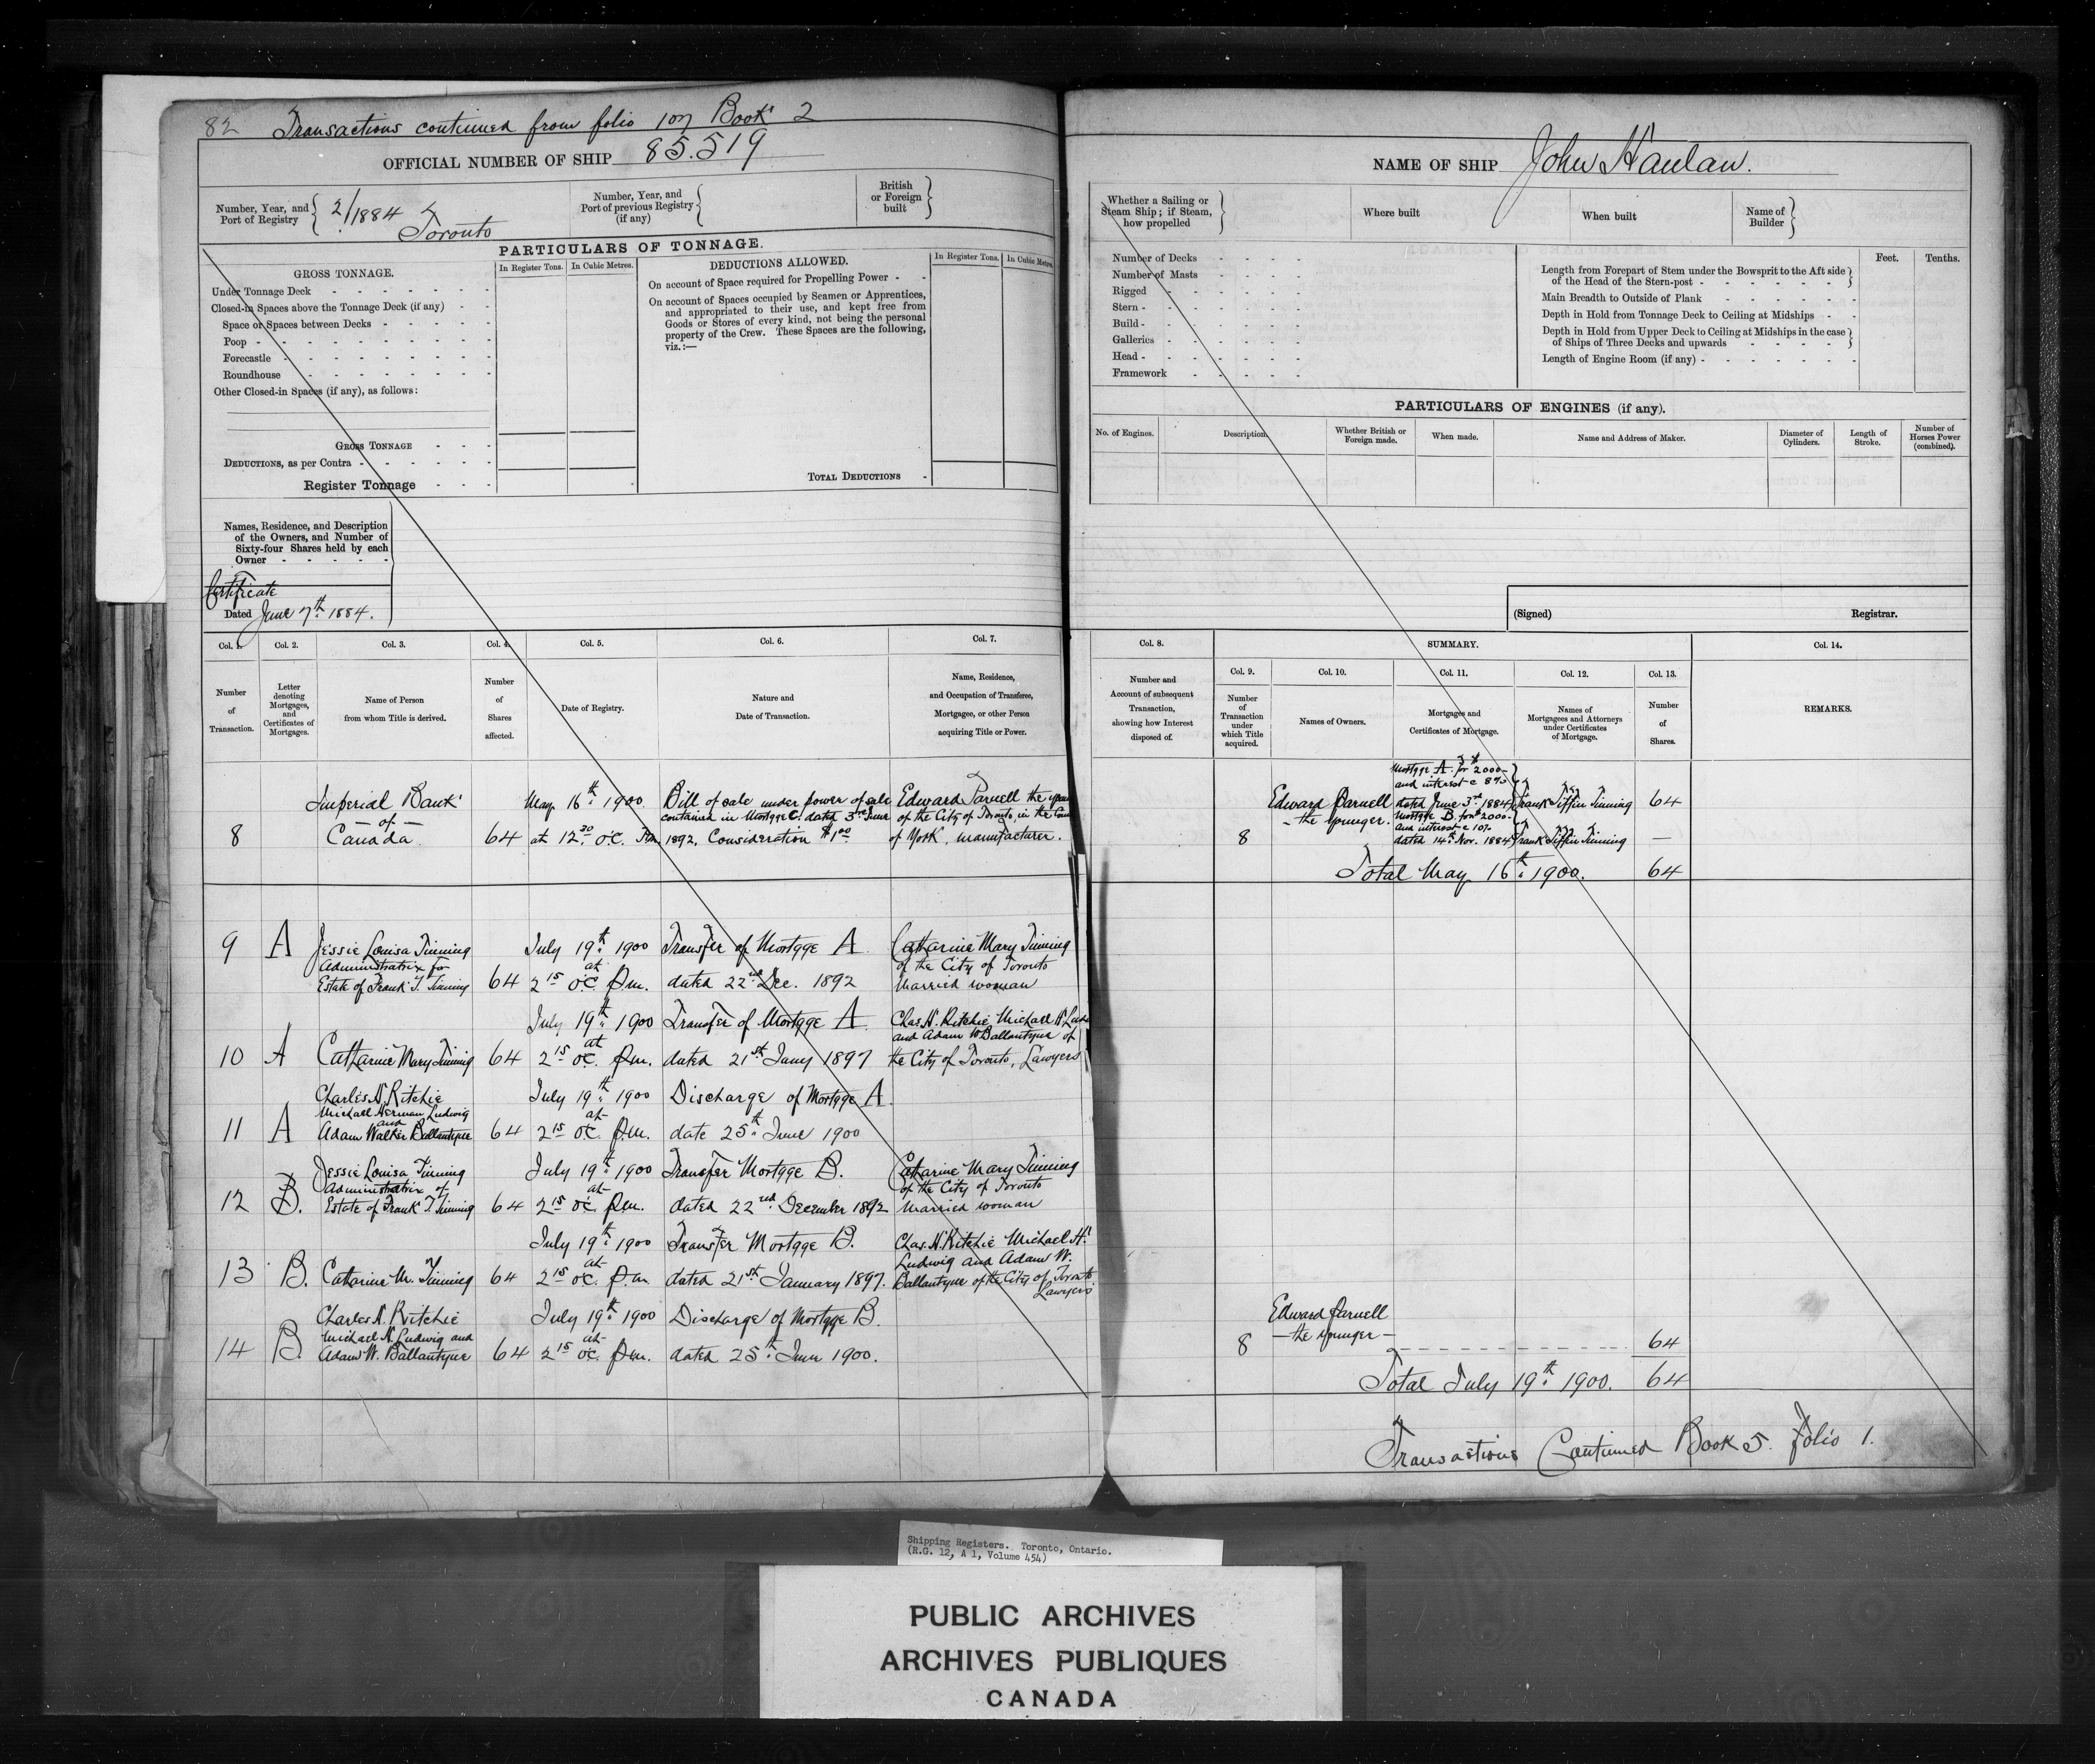 82 Transactions continued from folio 107 Book 2
OFFICIAL NUMBER OF SHIP 85.519
Number, Year, and Port of Registry 2/1884 Toronto
Number, Year, and Port of previous Registry (if any)
British or Foreign built
PARTICULARS OF TONNAGE.
GROSS TONNAGE.
In Register Tons.
In Cubic Metres.
DEDUCTIONS ALLOWED.
In Register Tons.
In Cubic Metres
Under Tonnage Deck
Closed-in Spaces above the Tonnage Deck (if any)
Space or Spaces between Decks
Poop
Forecastle
Roundhouse
Other Closed-in Spaces (if any), as follows:
GROSS TONNAGE
DEDUCTIONS, as per Contra
Register Tonnage
On account of Space required for Propelling Power
On account of Spaces occupied by Seamen or Apprentices,
and appropriated to their use, and kept free from
Goods or Stores of every kind, not being the personal
property of the Crew. These Spaces are the following,
viz.:—
TOTAL DEDUCTIONS
Names, Residence, and Description
of the Owners, and Number of
Sixty-four Shares held by each
Owner
Certificate
Dated June 7th 1884.
NAME OF SHIP John Hanlan.
Whether a Sailing or Steam Ship; if Steam, how propelled
Where built
When built
Name of Builder
Number of Decks
Number of Masts
Rigged
Stern
Build
Galleries
Head
Framework
Feet.
Tenths.
Length from Forepart of Stem under the Bowsprit to the Aft side
of the Head of the Stern-post
Main Breadth to Outside of Plank
Depth in Hold from Tonnage Deck to Ceiling at Midships
Depth in Hold from Upper Deck to Ceiling at Midships in the case
of Ships of Three Decks and upwards
Length of Engine Room (if any)
PARTICULARS OF ENGINES (if any).
No. of Engines.
Description.
Whether British or Foreign made.
When made.
Name and Address of Maker.
Diameter of Cylinders.
Length of Stroke.
Number of Horses Power (combined).
(Signed) Registrar.
Col. 1.
Col. 2.
Col. 3.
Col. 4.
Col. 5.
Col. 6.
Col. 7.
Col. 8.
SUMMARY.
Col. 14.
Col. 9.
Col. 10.
Col. 11.
Col. 12.
Col. 13.
Number of Transaction.
Letter denoting Mortgages, and Certificates of Mortgages.
Name of Person from whom Title is derived.
Number of Shares affected.
Date of Registry.
Nature and Date of Transaction.
Name, Residence, and Occupation of Transferee, Mortgagee, or other Person acquiring Title or Power.
Number and Account of subsequent Transaction, showing how Interest disposed of.
Number of Transaction under which Title acquired.
Names of Owners.
Mortgages and Certificates of Mortgage.
Names of Mortgagees and Attorneys under Certificates of Mortgage.
Number of Shares.
REMARKS.
8
Imperial Bank
— of —
Canada
64
May 16th 1900.
at 12 30 O.C. Pm
Bill of sale under power of sale
contained in Mortgge C. dated 3rd June
1892. Consideration $1 00
Edward Parnell the
of the City of Toronto, in the
of York, manufacturer.
8
Edward Parnell
– the younger.
Mortgge A. for $2000–
and interest @ 8%
dated June 3rd 1884
Frank Tiffin Tinning
64
Mortgge B. for $2000–
and interest @ 10%
dated 14th Nov. 1884
Frank Tiffin Tinning
—
Total May 16th 1900. 64
9 A
Jessie Louisa Tinning
Administratrix for
Estate of Frank T. Tinning
64
July 19th 1900
at
2 15 O.C. P.m.
Transfer of Mortgge A
dated 22nd Dec. 1892
Catharine Mary Tinning
of the City of Toronto
Married woman
10 A
Catharine Mary Tinning
64
July 19th 1900
at
2 15 O.C. P.m.
Transfer of Mortgge A
dated 21st Jany 1897
Chas. H. Ritchie Michael H.
and Adam W Ballantyne of
the City of Toronto, Lawyers
11 A
Charles H. Ritchie
Michael Herman Ludwig
and
Adam Walker Ballantyne
64
July 19th 1900
at
2 15 O.C. P.m.
Discharge of Mortgge A.
date 25th June 1900
12 B.
Jessie Louisa Tinning
Administratrix of
Estate of Frank T. Tinning
64
July 19th 1900
at
2 15 O.C. P.m.
Transfer Mortgge B.
dated 22nd December 1892
Catharine Mary Tinning
of the City of Toronto
Married woman
13 B.
Catharine M. Tinning
64
July 19th 1900
at
2 15 O.C. P.m.
Transfer Mortgge B.
dated 21st January 1897.
Chas. H. Ritchie Michael H.
Ludwig and Adam W.
Ballantyne of the City of Toronto
Lawyers
14 B.
Charles H. Ritchie
Michael H. Ludwig and
Adam W. Ballantyne
64
July 19th 1900
at
2 15 O.C. P.m.
Discharge of Mortgge B.
dated 25th June 1900.
8
Edward Parnell
— the younger —
64
Total July 19th 1900. 64
Transactions Continued Book 5. folio 1.
Shipping Registers. Toronto, Ontario.
(R.G. 12, A 1, Volume 454)
PUBLIC ARCHIVES
ARCHIVES PUBLIQUES
CANADA